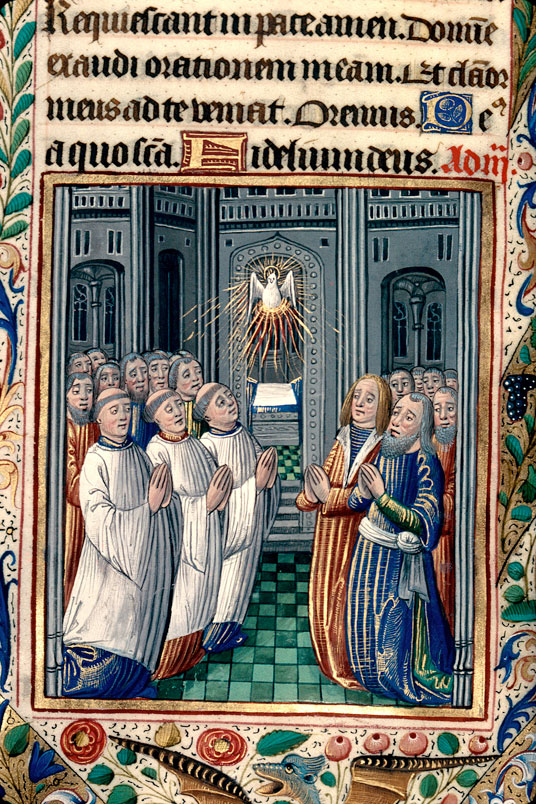 Requiescant in pace amen. Domīe
exaudi orationem meam. Et clāor
meus ad te veniat. Oremus. De⁹
a quo scā. Fidelium deus. Ad mṝ.